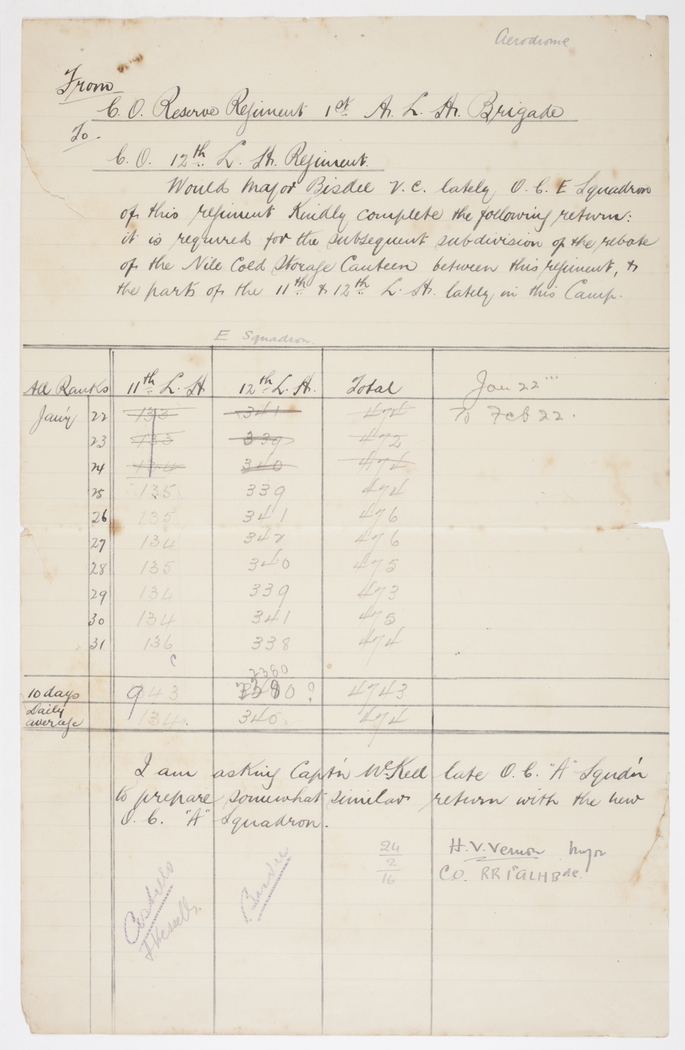 Aerodrome
From
C. O. Reserve Regiment 1st A. L. H. Brigade
To.
C. O. 12th L. H. Regiment.
Would Major Bisdee V. C. lately O. C. E Squadron
of this regiment Kindly complete the following return:
it is required for the subsequent subdivision of the rebate
of the Nile Cold Storage Canteen between this regiment, &
the parts of the 11th & 12th L. H. lately in this Camp.
E Squadron
All Ranks 11th L. H 12th L. H. Total Jan 22
Jan'y 22 133 341 474 To Feb 22.
23 133 339 472
24 134 340 474
25 135 339 474
26 135 341 476
27 134 342 476
28 135 340 475
29 134 339 473
30 134 341 475
31 136 338 474
c
2380
10 days 943 2380? 4743
Daily average 134. 340. 474
I am asking Capt'n McKell late O. C. "A" Squd'n
to prepare somewhat similar return with the new
O. C. "A" Squadron.
24
2
16
H. V. Vernon Major
C.O. RR 1st ALHBde.
Costello